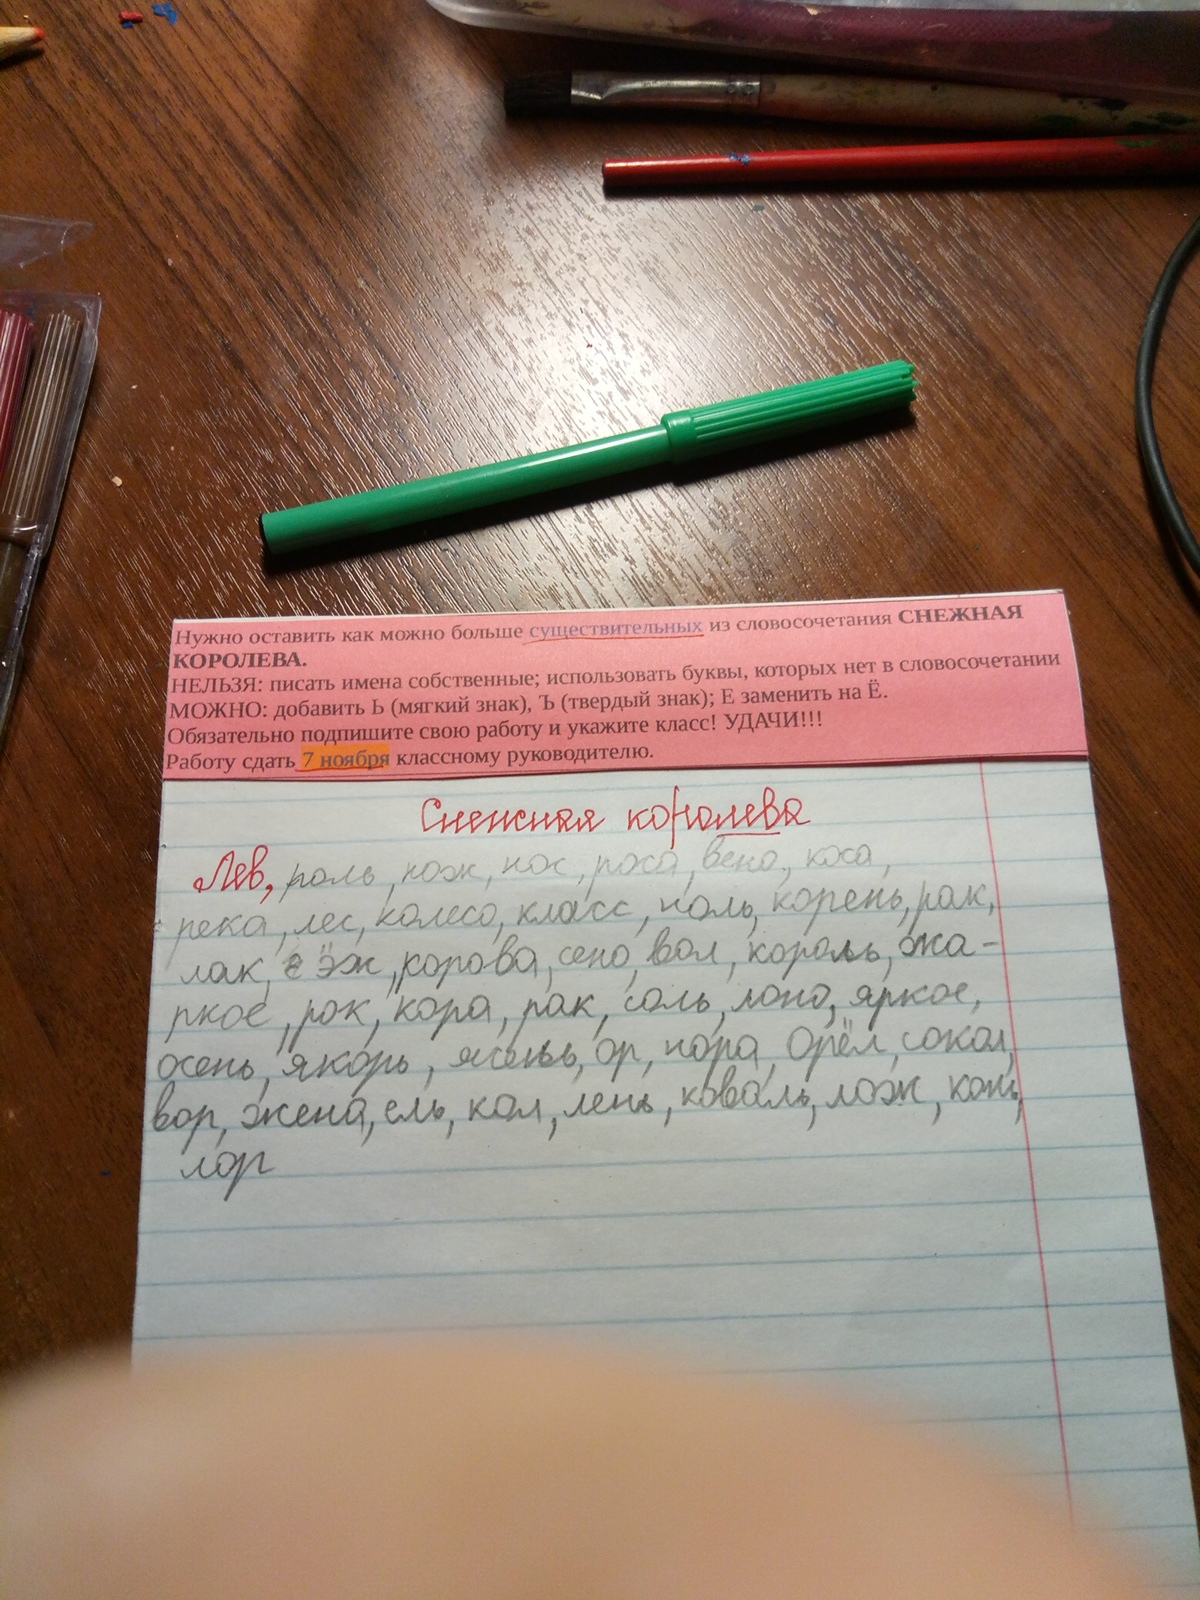 Нужно оставить как можно больше существительных из словосочетания СНЕЖНАЯ
КОРОЛЕВА.
НЕЛЬЗЯ: писать имена собственные; использовать буквы, которых нет в словосочетании
МОЖНО: добавить Ь (мягкий знак), Ъ (твердый знак); Е заменить на Ё.
Обязательно подпишите свою работу и укажите класс! УДАЧИ!!!
Работу сдать 7 ноября классному руководителю.
Снежная королева
Лев, роль, нож, нос, роса, вено, коса,
река, лес, колесо, класс, ноль, корень, рак,
лак, ёж, корова, сено, вол, король, жа-
ркое, рок, кора, рак, соль, лоно, яркое,
осень, якорь, ясень, ор, нора, орёл, сокол,
вор, жена, ель, кол, лень, коваль, лож, конь,
лор